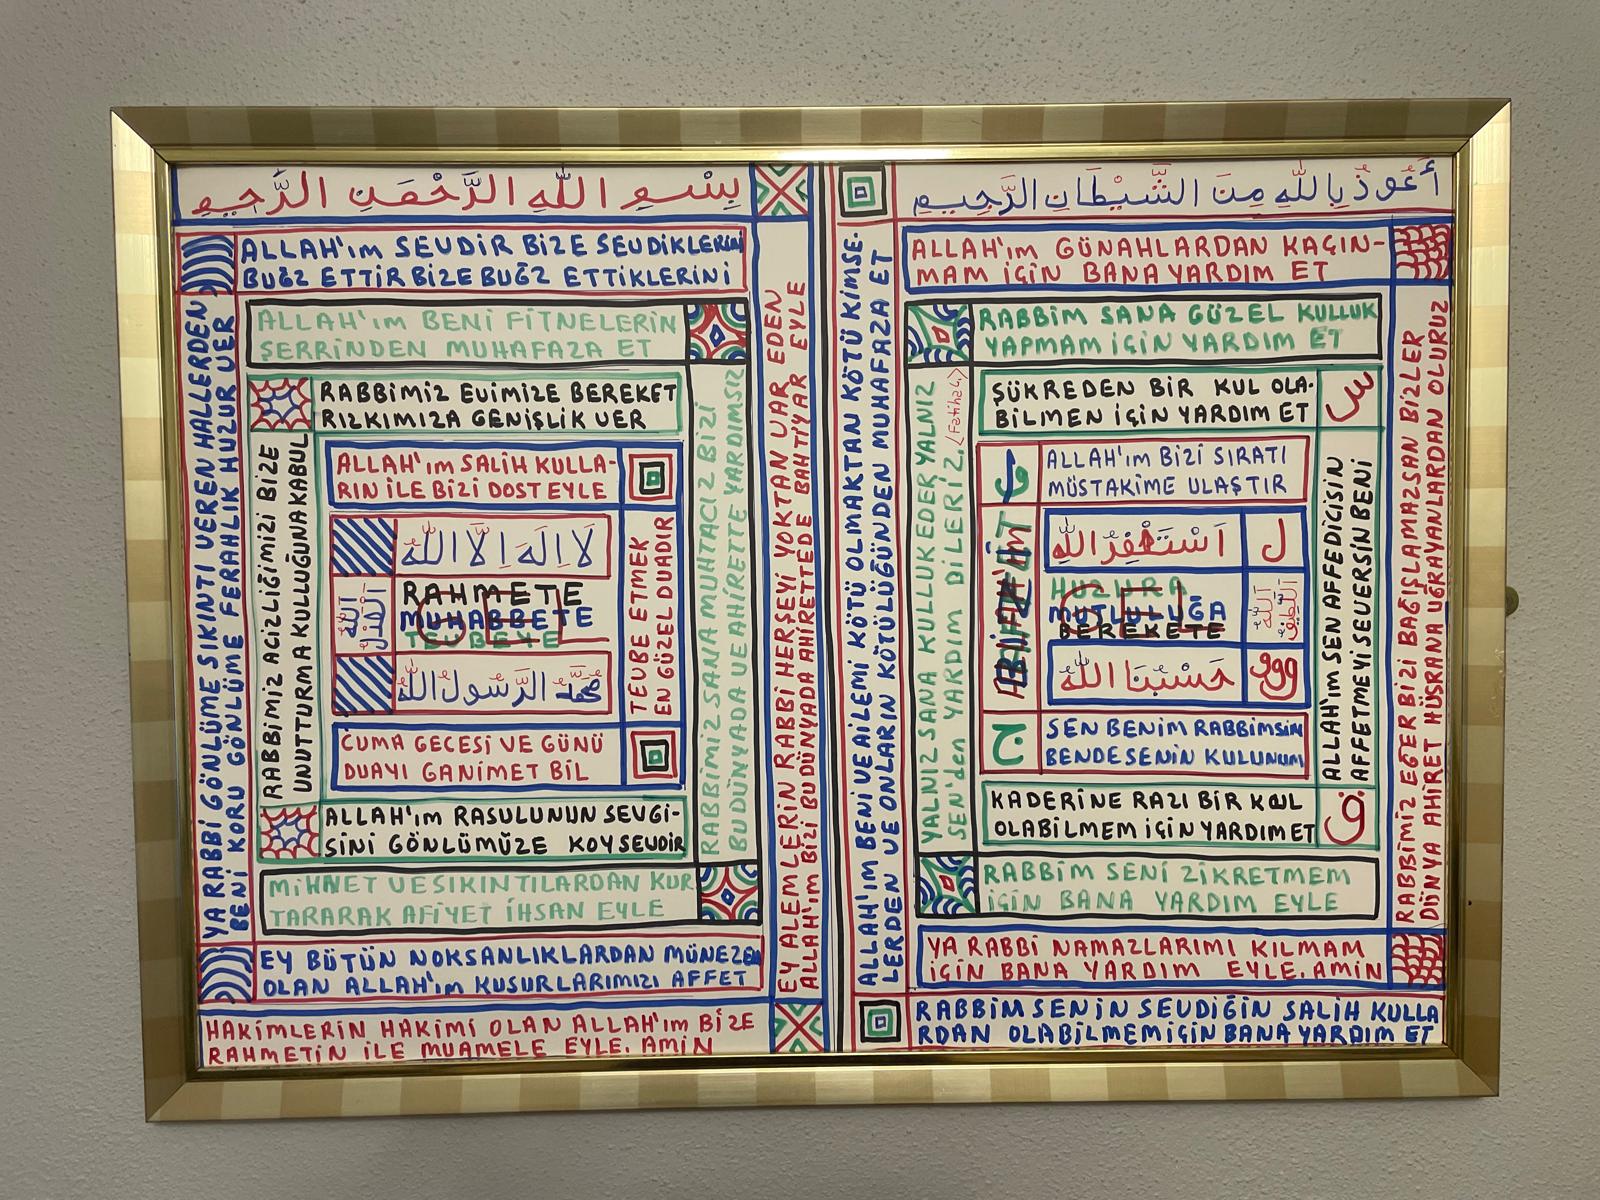 بِسْمِ اللهِ الرَّحْمَنِ الرَّحِيمِ
ALLAH'ım SEVDİR BİZE SEVDİKLERİNİ
BUĞZ ETTİR BİZE BUĞZ ETTİKLERİNİ
YA RABBİ GÖNLÜME SIKINTI VEREN HALLERDEN
BENİ KORU GÖNLÜME FERAHLIK HUZUR VER
ALLAH'ım BENİ FİTNELERİN
ŞERRİNDEN MUHAFAZA ET
RABBİMİZ EVİMİZE BEREKET
RIZKIMIZA GENİŞLİK VER
RABBİMİZ ACİZLİĞİMİZİ BİZE
UNUTTURMA KULLUĞUNA KABUL
ALLAH'ım SALİH KULLA-
RIN İLE BİZİ DOST EYLE
لَا اِلَهَ اِلَّا اللهُ
RAHMETE
MUHABBETE
TEVBEYE
GEL
مُحَمَّد الرَّسُولُ اللهُ
TEVBE ETMEK
EN GÜZEL DUADIR
CUMA GECESİ VE GÜNÜ
DUAYI GANİMET BİL
ALLAH'ım RASULUNUN SEVGİ-
SİNİ GÖNLÜMÜZE KOY SEVDİR
RABBİMİZ SANA MUHTACIZ BİZİ
BU DÜNYADA VE AHİRETTE YARDIMSIZ
MİHNET VE SIKINTILARDAN KUR
TARARAK AFİYET İHSAN EYLE
EY BÜTÜN NOKSANLIKLARDAN MÜNEZEH
OLAN ALLAH'ım KUSURLARIMIZI AFFET
EY ALEMLERİN RABBİ HERŞEYİ YOKTAN VAR EDEN
ALLAH'ım BİZİ BU DÜNYADA AHİRETTEDE BAHTİYAR EYLE
HAKİMLERİN HAKİMİ OLAN ALLAH'ım BİZE
RAHMETİN İLE MUAMELE EYLE. AMİN
أَعُوذُ بِاللهِ مِنَ الشَّيْطَانِ الرَّجِيمِ
ALLAH'ım BENİ VE AİLEMİ KÖTÜ OLMAKTAN KÖTÜ KİMSE-
LERDEN VE ONLARIN KÖTÜLÜĞÜNDEN MUHAFAZA ET
ALLAH'ım GÜNAHLARDAN KAÇIN-
MAM İÇİN BANA YARDIM ET
RABBİM SANA GÜZEL KULLUK
YAPMAM İÇİN YARDIM ET
YALNIZ SANA KULLUK EDER YALNIZ
SEN'den YARDIM DİLERİZ. (Fatiha 4)
ŞÜKREDEN BİR KUL OLA-
BİLMEN İÇİN YARDIM ET
س
و
ALLAH'ım BİZİ SIRATI
MÜSTAKİME ULAŞTIR
اَسْتَغْفِرُ اللهِ
ل
HUZURA
MUTLULUĞA
BEREKETE
GEL
حَسْبُنَا اللهُ
ووو
ج
SEN BENİM RABBİMSİN
BENDE SENİN KULUNUM
ALLAH'ım SEN AFFEDİCİSİN
AFFETMEYİ SEVERSİN BENİ
KADERİNE RAZI BİR KUL
OLABİLMEM İÇİN YARDIM ET
ق
RABBİM SENİ ZİKRETMEM
İÇİN BANA YARDIM EYLE
YA RABBİ NAMAZLARIMI KILMAM
İÇİN BANA YARDIM EYLE. AMİN
RABBİMİZ EĞER BİZİ BAĞIŞLAMAZSAN BİZLER
DÜNYA AHİRET HÜSRANA UĞRAYANLARDAN OLURUZ
RABBİM SENİN SEVDİĞİN SALİH KULLA
RDAN OLABİLMEM İÇİN BANA YARDIM ET